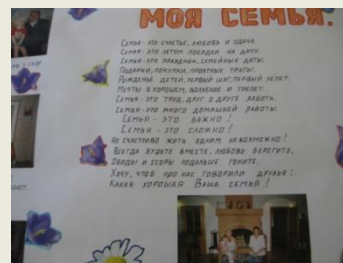 МОЯ СЕМЬЯ.
Семье - это счастье, любовь и удача,
Семья - это летом поездки на дачу.
Семья - это праздник, семейные даты,
Подарки, покупки, приятные траты.
Рожденье детей, первый шаг, первый лепет,
Мечты о хорошем, волнение и трепет.
Семья - это труд, друг о друге забота,
Семья - это много домашней работы.
Семья - это важно!
Семья - это сложно!
Но счастливо жить одним невозможно!
Всегда будьте вместе, любовь берегите,
Обиды и ссоры подальше гоните,
Хочу, чтоб про нас говорили друзья:
Какая хорошая Ваша семья!